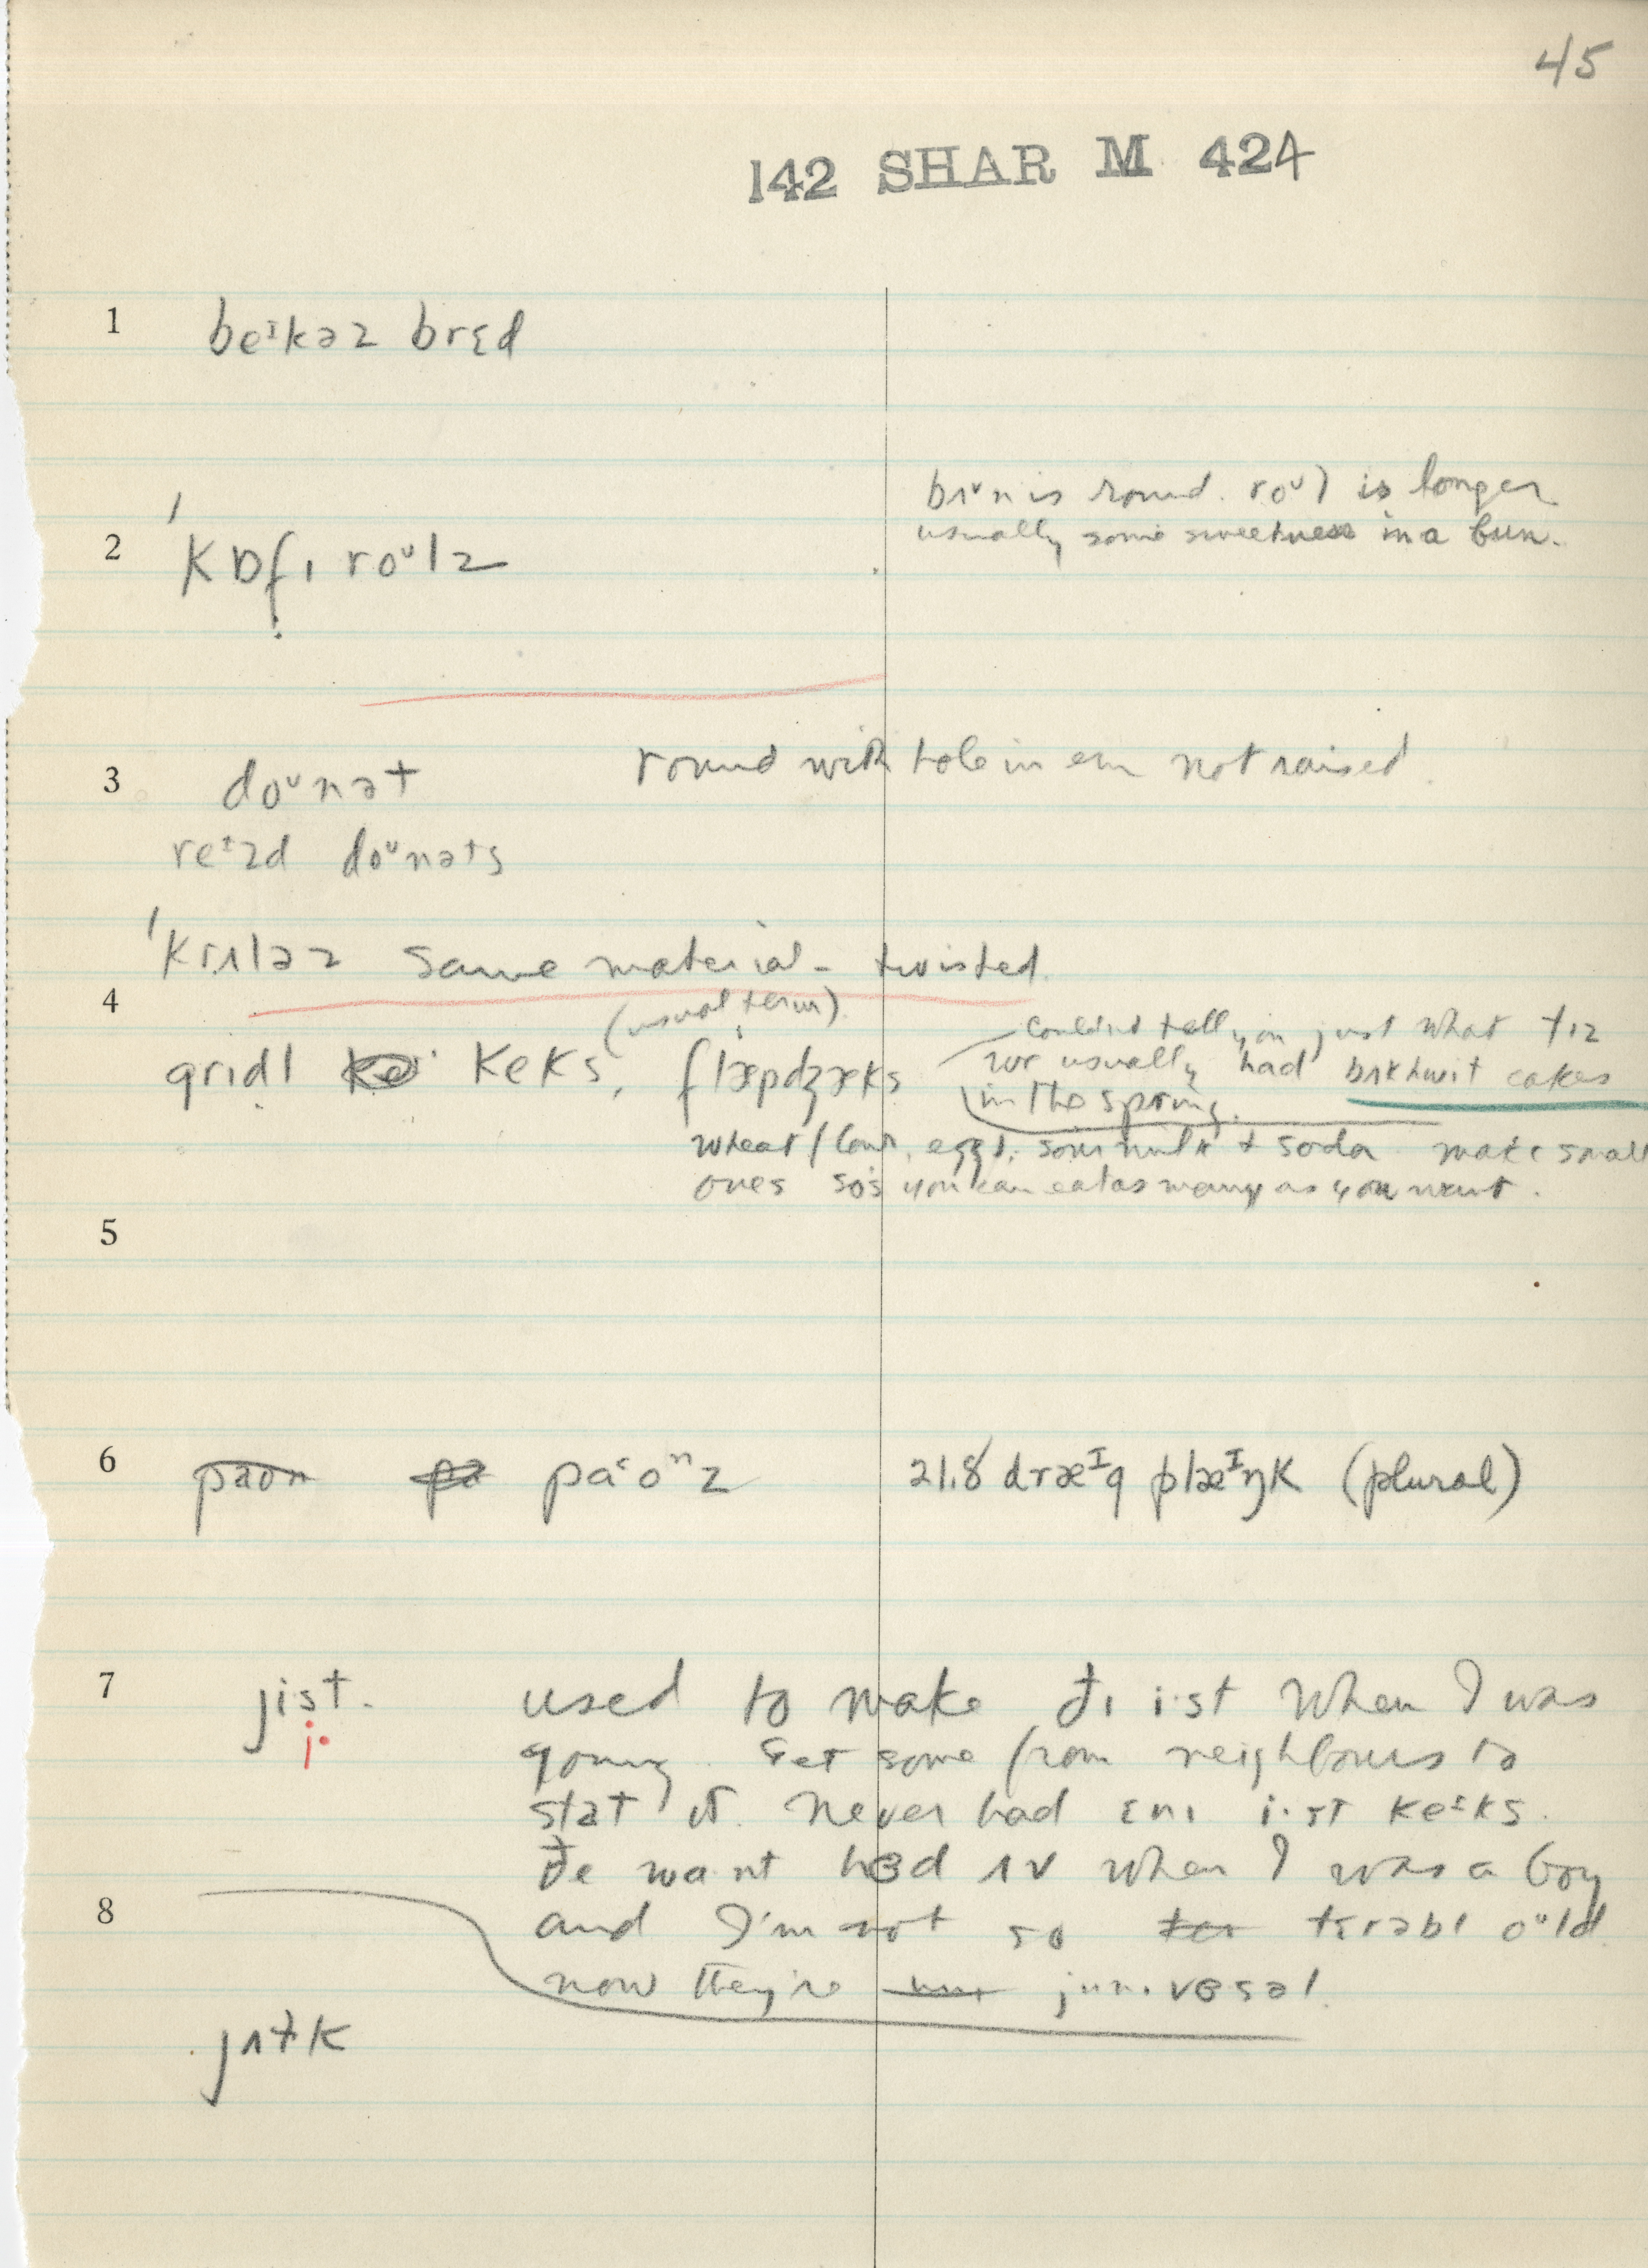 45
142 SHAR M 424
1 beᶦkəz brɛd
bʌᵛn is round. roᵘl is longer
usually some sweetness in a bun.
2 ˈkɒfɪ roᵘlz
3 doᵘnət round with hole in em not raised.
reᶦzd doᵘnəts
ˈkrʌləz same material - twisted.
4 (usual term)
couldn't tell you just what tɪz
grɪdl keks, flæpdʒæks we usually had bʌkhwit cakes
in the spring.
wheat flour, eggs, sour milk + soda make small
ones so's you can eat as many as you want.
5
6 paon pa paᶜoⁿz 21.8 dræᴵg plæᴵŋk (plural)
7 jist. used to make ðɪ i·st when I was
j·
young. Get some from neighbours to
stat it. Never had ɛnɪ i·st keᶦks.
ðe wa nt hɜd ʌv when I was a boy
8 and I'm not so tɛrəbl oᵘld
now they're jun·vɜsəl.
jʌtk